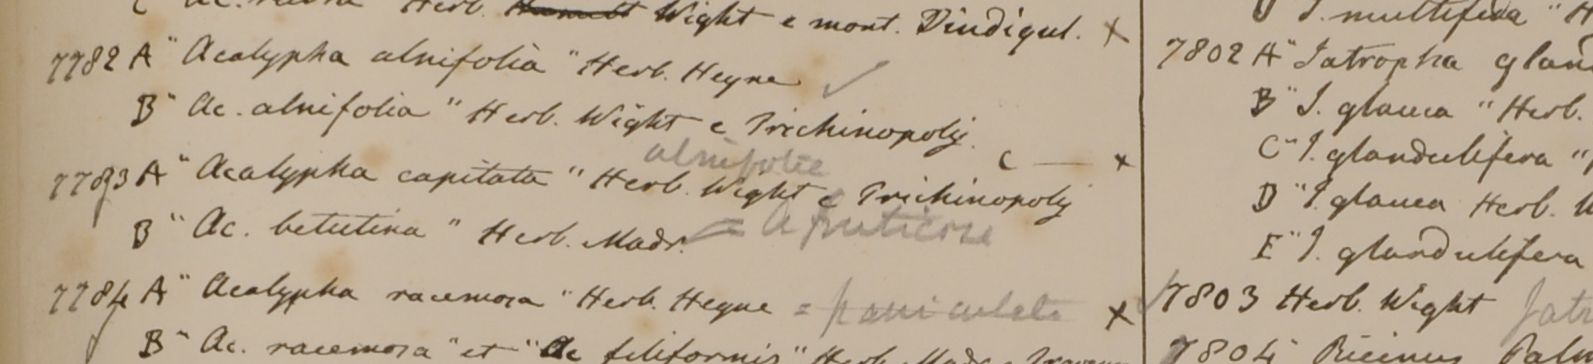 C Ac. Herb. Wight e mont. Dindigul. ×
7782 A "Acalypha alnifolia" Herb. Heyne ✓
B "Ac. alnifolia" Herb. Wight e Trichinopoly.
C — ×
alnifolia
7783 A "Acalypha capitata" Herb. Wight e Trichinopoly
B "Ac. betulina" Herb. Madr. = A fruticosa
7784 A "Acalypha racemosa" Herb. Heyne = paniculata ×
B "Ac. racemosa" et "Ac filiformis" Herb. Madr. e
J. multifida "H
7802 A "Jatropha glan
B "J. glauca" Herb.
C "J. glandulifera "
D "J. glauca Herb. W
E "J. glandulifera
7803 Herb. Wight Jatr
7804 Ricinus